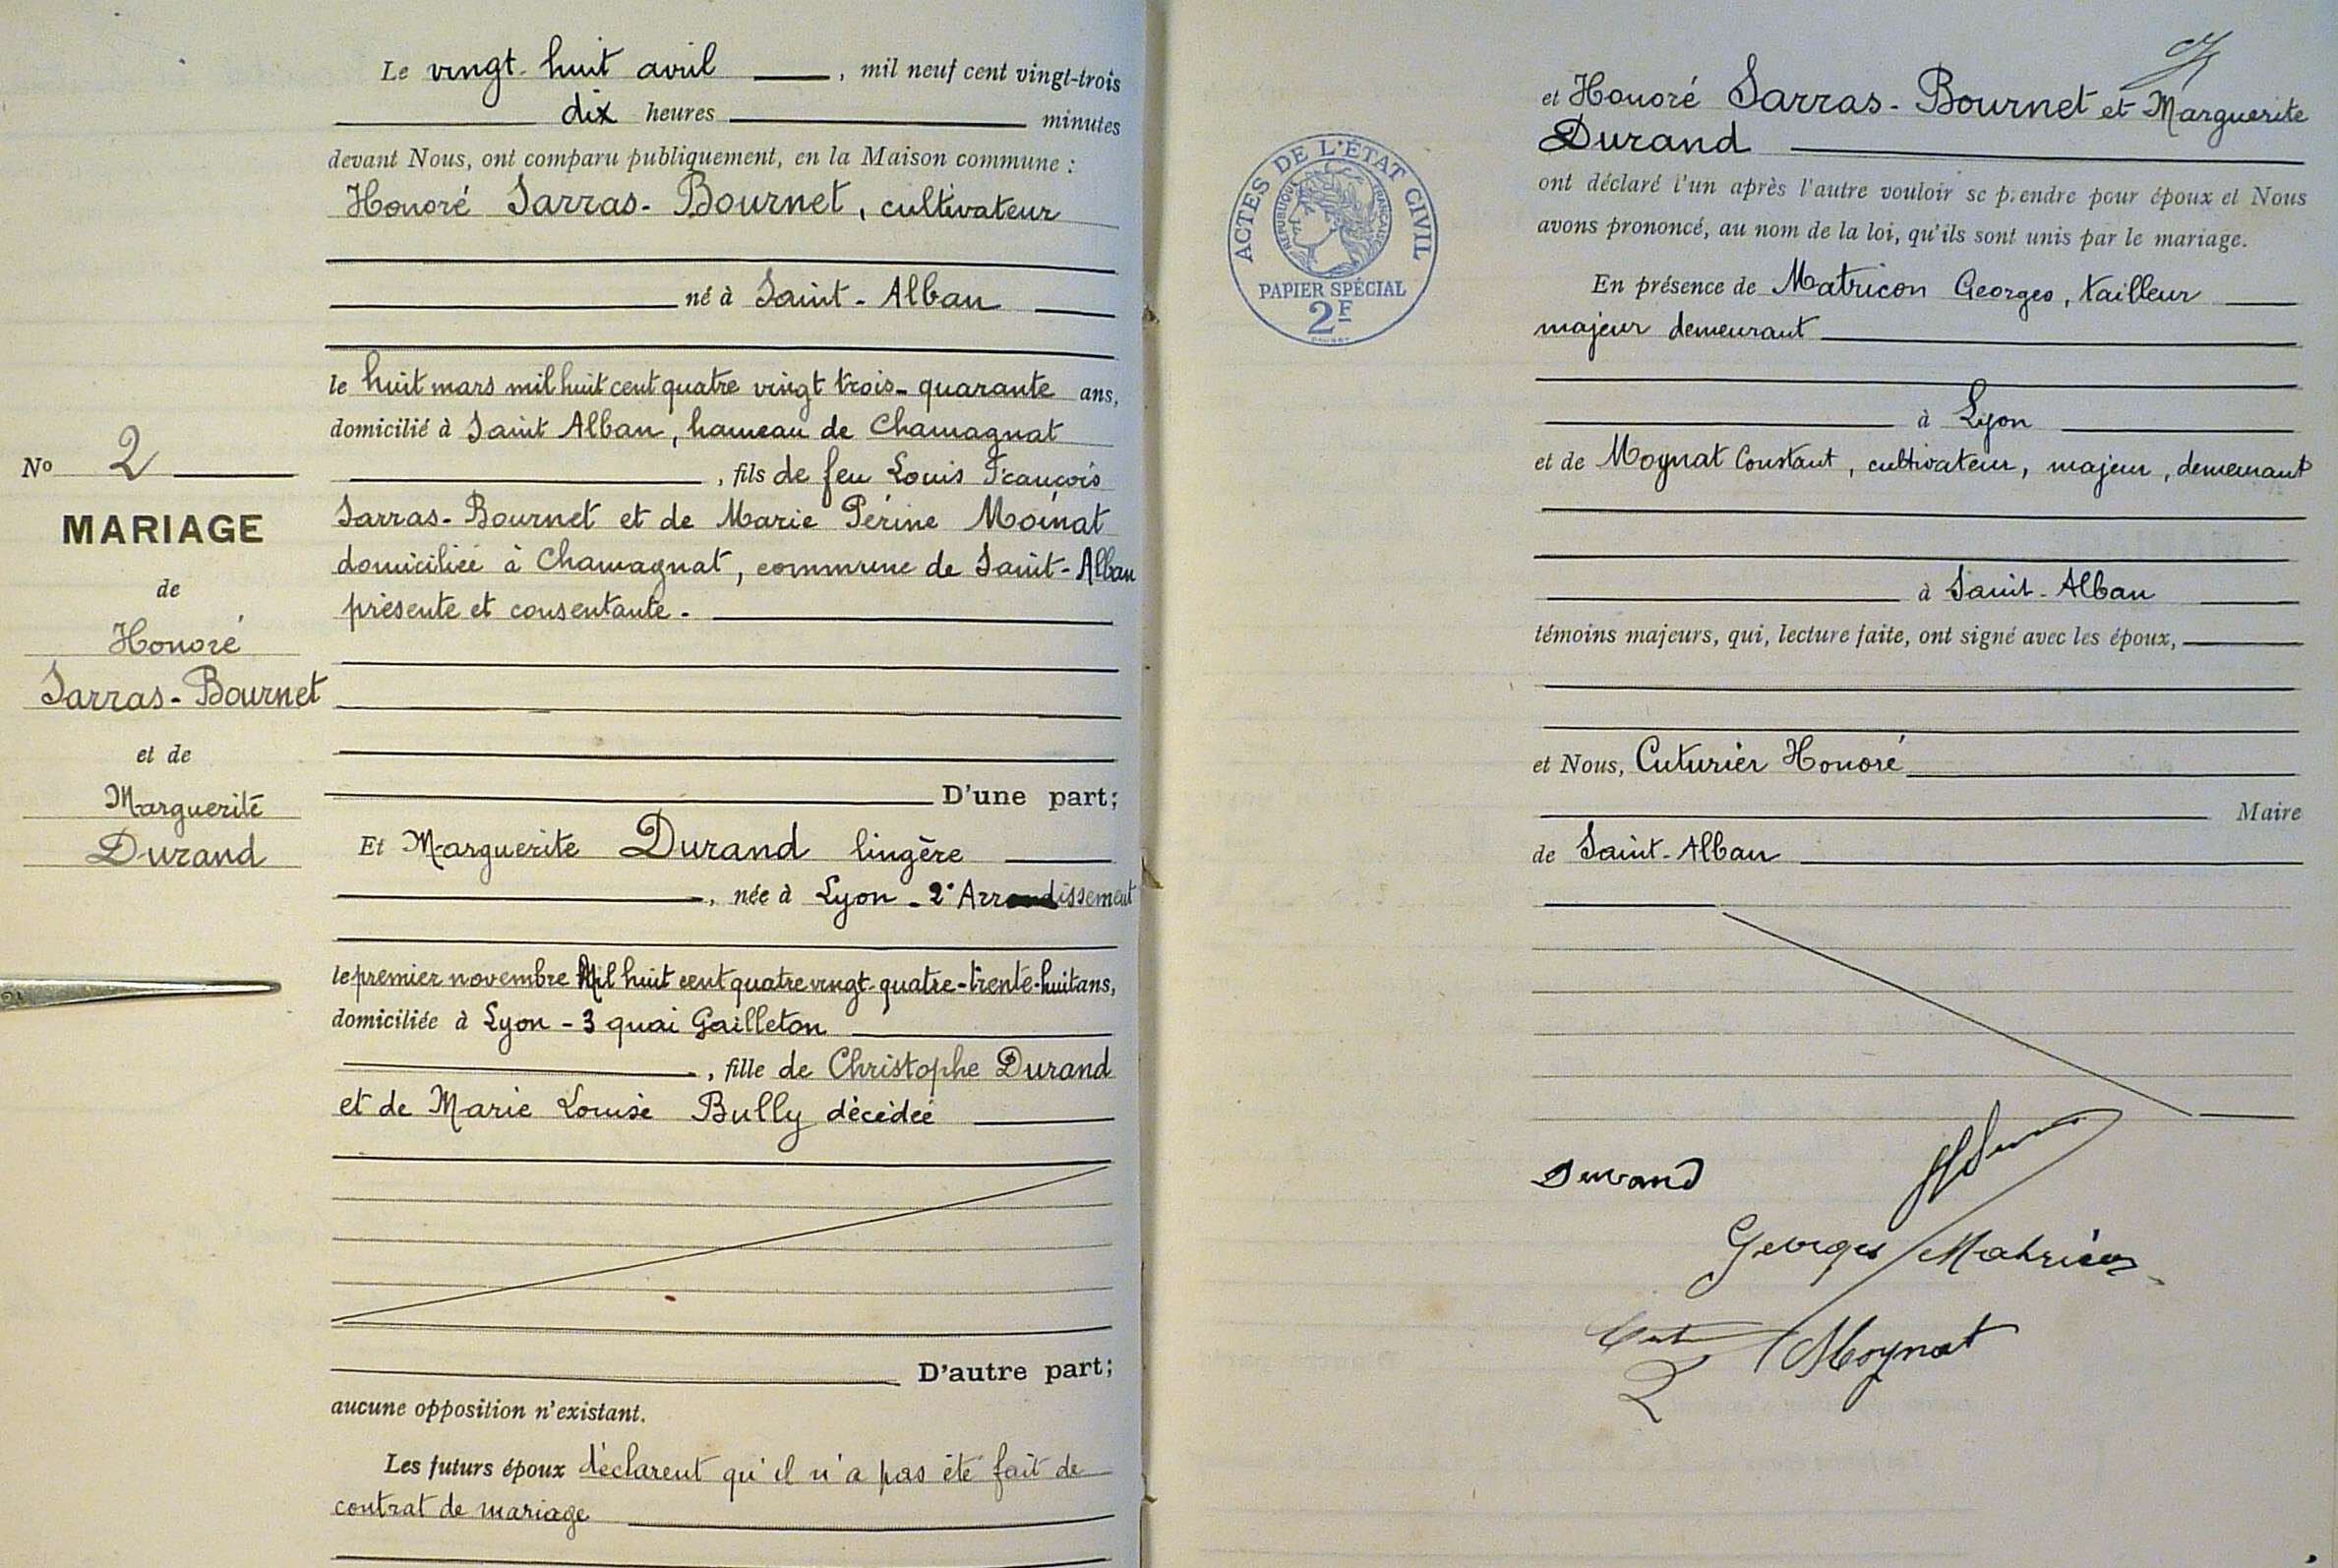 Nº 2
MARIAGE
de
Honoré
Sarras-Bournet
et de
Marguerite
Durand
Le vingt-huit avril, mil neuf cent vingt-trois
dix heures minutes
devant Nous, ont comparu publiquement, en la Maison commune :
Honoré Sarras-Bournet, cultivateur
né à Saint-Alban
le huit mars mil huit cent quatre vingt trois - quarante ans,
domicilié à Saint Alban, hameau de Chamagnat
, fils de feu Louis François
Sarras-Bournet et de Marie Périne Moinat
domiciliée à Chamagnat, commune de Saint-Alban
présente et consentante.
D'une part;
Et Marguerite Durand lingère
, née à Lyon - 2e Arrondissement
le premier novembre Mil huit cent quatre vingt-quatre - trente-huit ans,
domiciliée à Lyon - 3 quai Gailleton
, fille de Christophe Durand
et de Marie Louise Bully décédée
D'autre part;
aucune opposition n'existant.
Les futurs époux déclarent qu'il n'a pas été fait de
contrat de mariage
et Honoré Sarras-Bournet et Marguerite
Durand
ont déclaré l'un après l'autre vouloir se prendre pour époux et Nous
avons prononcé, au nom de la loi, qu'ils sont unis par le mariage.
ACTES DE L'ÉTAT CIVIL
RÉPUBLIQUE FRANÇAISE
PAPIER SPÉCIAL
2F
En présence de Matricon Georges, tailleur
majeur demeurant
à Lyon
et de Moynat Constant, cultivateur, majeur, demeurant
à Saint-Alban
témoins majeurs, qui, lecture faite, ont signé avec les époux,
et Nous, Cuturier Honoré
Maire
de Saint-Alban
Durand
Georges Matricon
Moynat